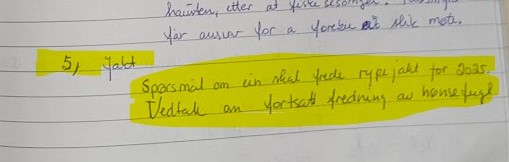 hausten, etter at fiske sesongen
får ansvar for å forebu eit slik møte.
5, Jakt
Spørsmål om ein skal frede rypejakt for 2025.
Vedtak om fortsatt fredning av hønsefugl.